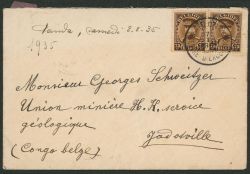 samedi 2-2-35
1935
Monsieur Georges Schweitzer
Union minière H. K. service
géologique
Jadotville
(Congo belge)